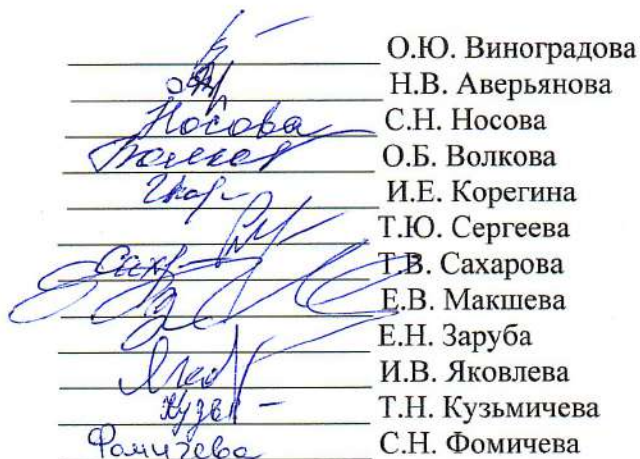 О.Ю. Виноградова
Н.В. Аверьянова
Носова С.Н. Носова
О.Б. Волкова
И.Е. Корегина
Т.Ю. Сергеева
Сахр Т.В. Сахарова
Е.В. Макшева
Е.Н. Заруба
И.В. Яковлева
Т.Н. Кузьмичева
Фомичева С.Н. Фомичева